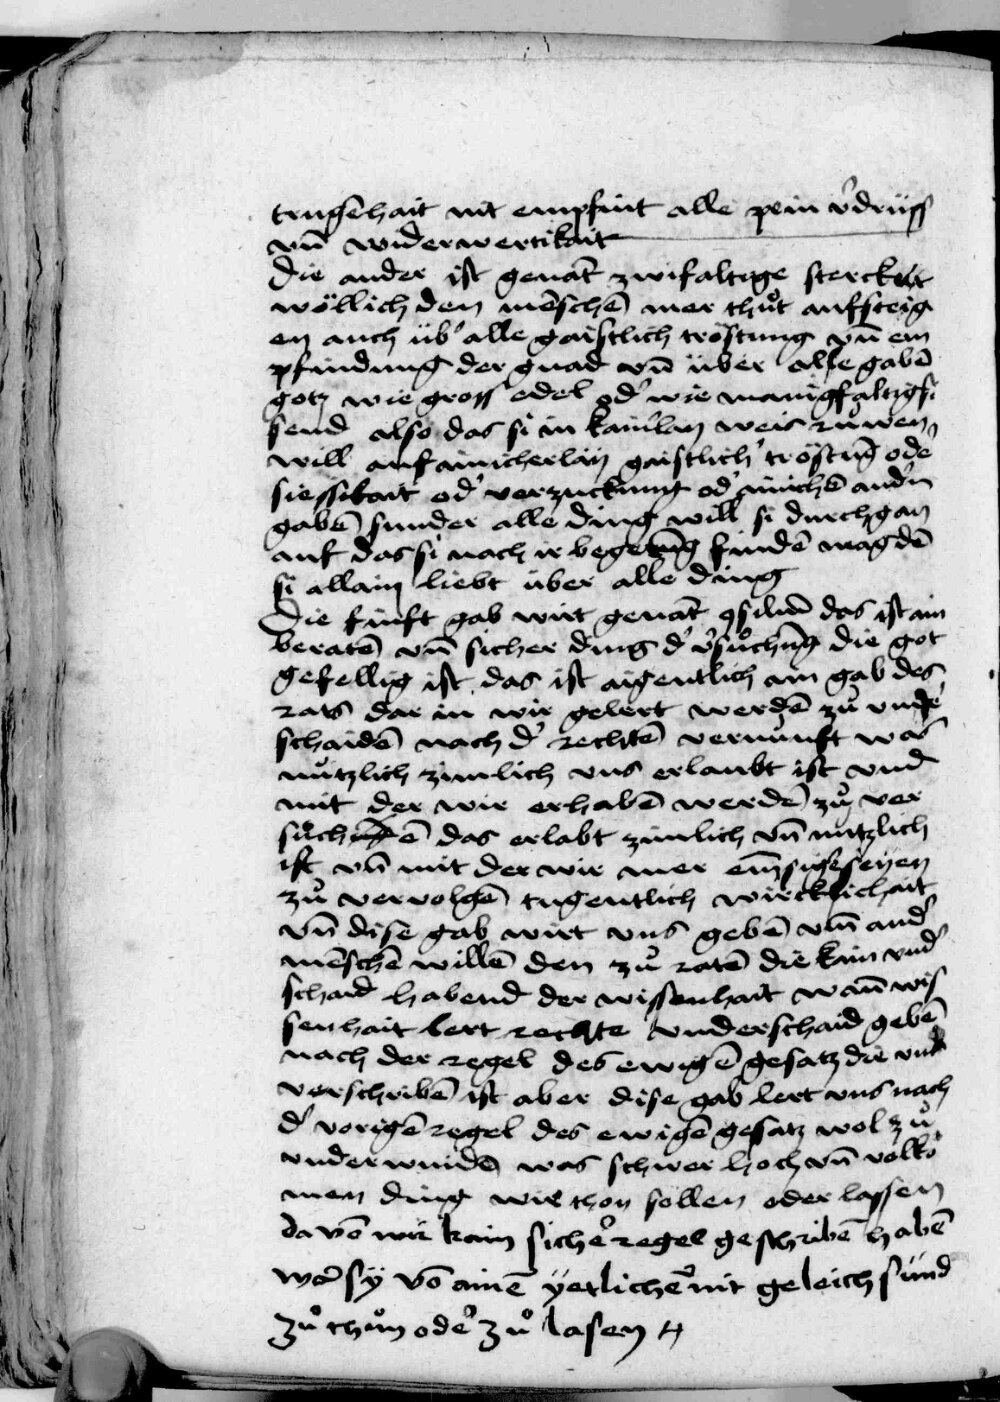 trugēhait nit empfint alle pein v̓drüss
vn̄ widerwertikait
Die ander ist genāt zwifaltige sterck
wöllich den mēschē mer thůt aufsteig
en auch üb̓ alle gaistlich tröstung vn̄ em
pfindung der gnad vn̄ über alle gabē
gotz wie gross edel od̓ wie manigfaltig si
send also das si in kainlay weis růwen
will auf ainicherlay gaistlich tröstūg ode
siessikait od̓ verzuckung od̓ ainichē and̓n
gabē sunder alle ding will si durchgan
auf das si nach ir begerūg findē mag dē
si allain liebt über alle ding
Die finft gab wirt genāt ꝯsiliū das ist ain
beratē vn̄ sicher ding d̓ v̓sůchūg die got
gefellig ist das ist aigentlich ain gab des
rats dar in wir gelert werdē zů vnde̓
schaidē nach d̓ rechtē vernunft was
nutzlich zimlich vns erlaubt ist vnd
mit der wir erhabē werdē zů ver
sůchē das erlabt zimlich vn̄ nutzlich
ist vn̄ mit der wir mer em̄sig seyen
zů vervolgē tugentlich wircklichait
vn̄ dise gab wirt vns gebē vm̄ and̓
mēschē willē den zů ratē die kain vnd̓
schaid habend der wissenhait wan̄ wis
senhait lert rechte vnderschaid gebē
nach der regel des ewigē gesatz die vns
verschribē ist aber dise gab lert vns nach
d̓ vorigē regel des ewigē gesatz wol zů
vnderwindē was schwer hoch vn̄ volko
men ding wir thon söllen oder lassen
da vō wir kain siche̓ regel geschribē habē
we̓ sÿ vō ainē ÿetlichē nit geleich sünd
zů thůn ode̓ zů lasen